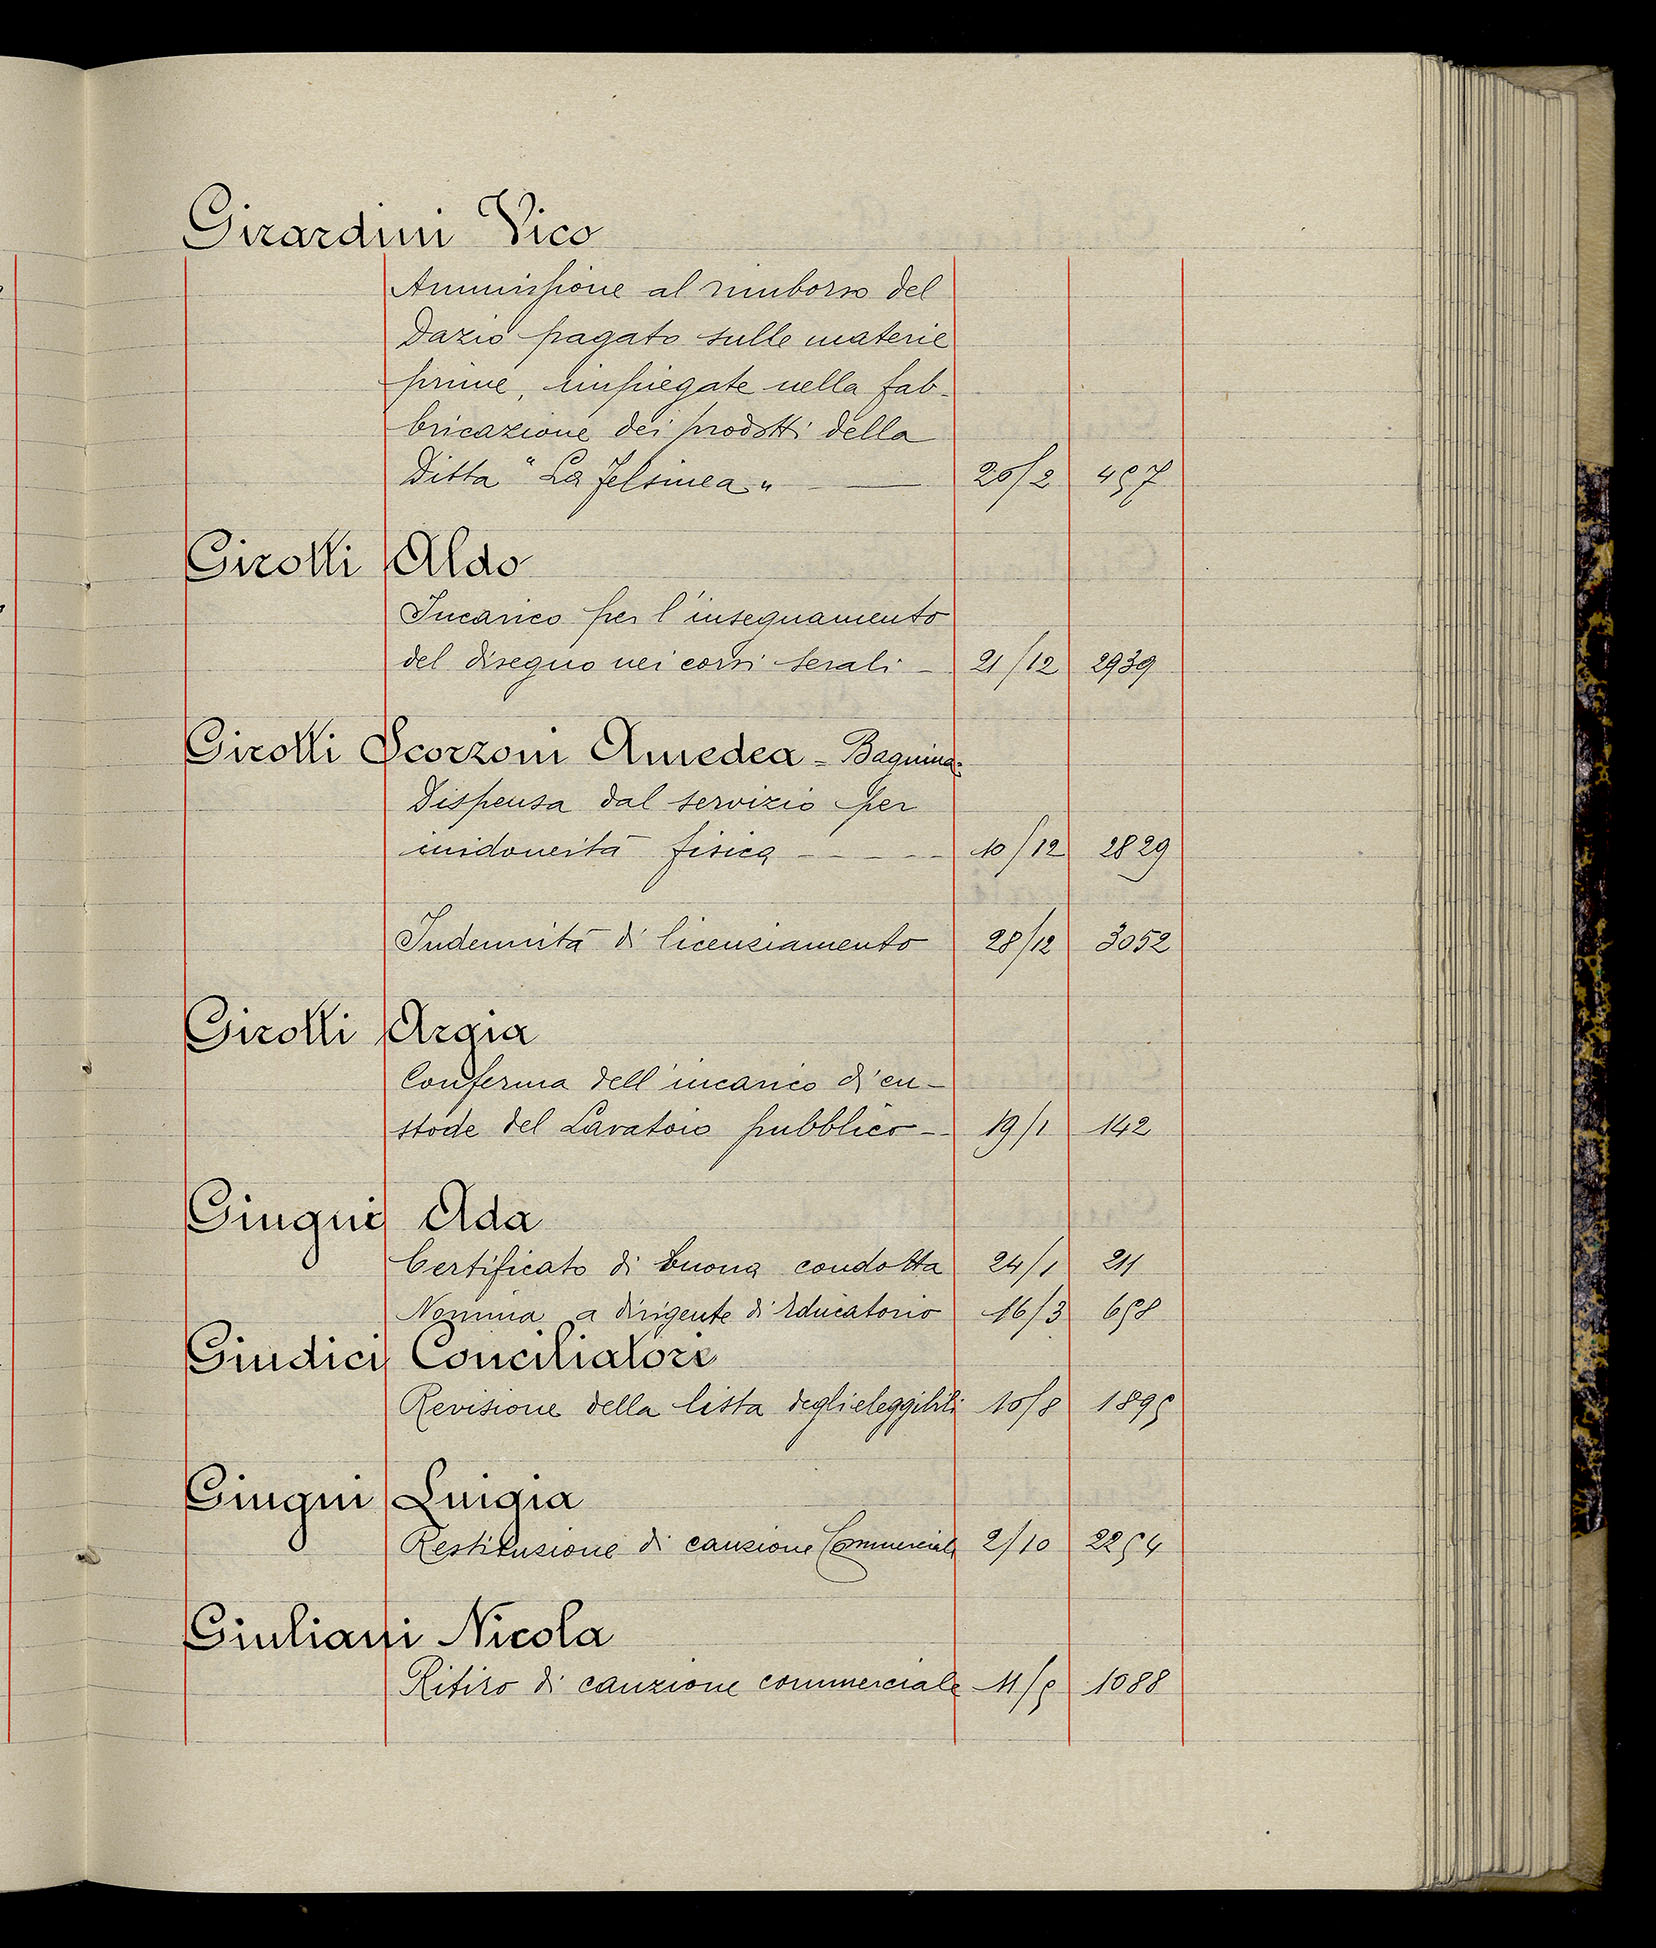 Girardini Vico
Ammissione al rimborso del
Dazio pagato sulle materie
prime, impiegate nella fab-
bricazione dei prodotti della
Ditta "La Felsinea" 26/2 457
Girotti Aldo
Incarico per l'insegnamento
del disegno nei corsi serali - 21/12 2939
Girotti Scorzoni Amedea - Bagnina -
Dispensa dal servizio per
inidoneità fisica - - - - 10/12 2829
Indennità di licenziamento 28/12 3052
Girotti Argia
Conferma dell'incarico di cu-
stode del Lavatoio pubblico - 19/1 142
Giugni Ada
Certificato di buona condotta 24/1 211
Nomina a dirigente di Educatorio 16/3 658
Giudici Conciliatori
Revisione della lista degli eleggibili 10/8 1895
Giugni Luigia
Restituzione di cauzione Commerciale 2/10 2254
Giuliani Nicola
Ritiro di cauzione commerciale 11/5 1088